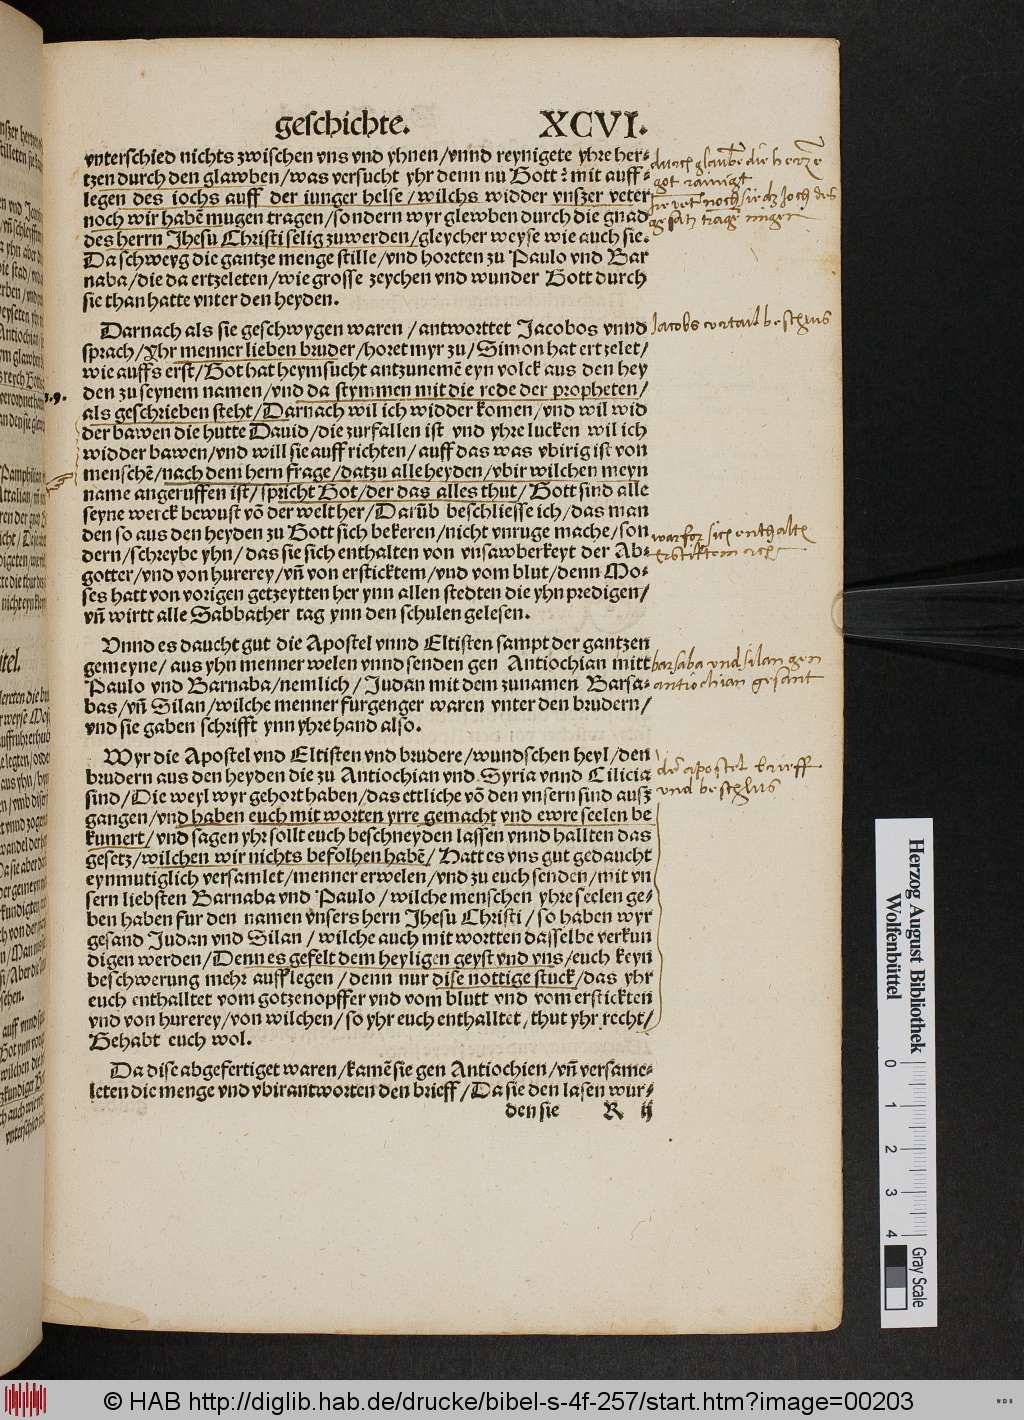 geschichte. XCVI.
vnterschied nichts zwischen vns vnd yhnen/vnnd reynigete yhre her-
tzen durch den glawben/was versucht yhr denn nu Gott? mit auff-
legen des iochs auff der iunger helse/wilchs widder vnszer veter
noch wir habẽ mugen tragen/sondern wyr glewben durch die gnad
des herrn Jhesu Christi selig zuwerden/gleycher weyse wie auch sie.
Da schweyg die gantze menge stille/vnd horeten zu Paulo vnd Bar
naba/die da ertzeleten/wie grosse zeychen vnd wunder Gott durch
sie than hatte vnter den heyden.
Darnach als sie geschwygen waren/antworttet Jacobos vnnd
sprach/Yhr menner lieben bruder/horet myr zu/Simon hat ertzelet/
wie auffs erst/Got hat heymsucht antzunemẽ eyn volck aus den hey
den zu seynem namen/vnd da stymmen mit die rede der propheten/
als geschrieben steht/Darnach wil ich widder komen/vnd wil wid
der bawen die hutte Dauid/die zurfallen ist vnd yhre lucken wil ich
widder bawen/vnd will sie auff richten/auff das was vbirig ist von
menschẽ/nach dem hern frage/datzu alle heyden/vbir wilchen meyn
name angeruffen ist/spricht Got/der das alles thut/Gott sind alle
seyne werck bewust võ der welt her/Darũb beschliesse ich/das man
den so aus den heyden zu Gott sich bekeren/nicht vnruge mache/son
dern/schreybe yhn/das sie sich enthalten von vnsawberkeyt der Ab-
gotter/vnd von hurerey/vñ von ersticktem/vnd vom blut/denn Mo-
ses hatt von vorigen getzeytten her ynn allen stedten die yhn predigen/
vñ wirtt alle Sabbather tag ynn den schulen gelesen.
Vnnd es daucht gut die Apostel vnnd Eltisten sampt der gantzen
gemeyne/aus yhn menner welen vnnd senden gen Antiochian mitt
Paulo vnd Barnaba/nemlich/Judan mit dem zunamen Barsa-
bas/vñ Silan/wilche menner furgenger waren vnter den brudern/
vnd sie gaben schrifft ynn yhre hand also.
Wyr die Apostel vnd Eltisten vnd brudere/wundschen heyl/den
brudern aus den heyden die zu Antiochian vnd Syria vnnd Cilicia
sind/Die weyl wyr gehort haben/das ettliche võ den vnsern sind ausz
gangen/vnd haben euch mit worten yrre gemacht vnd ewre seelen be
kumert/vnd sagen yhr sollt euch beschneyden lassen vnnd hallten das
gesetz/wilchen wir nichts befolhen habẽ/Hatt es vns gut gedaucht
eynmutiglich versamlet/menner erwelen/vnd zu euch senden/mit vn
sern liebsten Barnaba vnd Paulo/wilche menschen yhre seelen ge-
ben haben fur den namen vnsers hern Jhesu Christi/so haben wyr
gesand Judan vnd Silan/wilche auch mit wortten dasselbe verkun
digen werden/Denn es gefelt dem heyligen geyst vnd vns/euch keyn
beschwerung mehr aufflegen/denn nur dise nottige stuck/das yhr
euch enthalltet vom gotzenopffer vnd vom blutt vnd vom erstickten
vnd von hurerey/von wilchen/so yhr euch enthalltet/thut yhr recht/
Gehabt euch wol.
Da dise abgefertiget waren/kamẽ sie gen Antiochien/vñ versame-
leten die menge vnd vbirantworten den brieff/Da sie den lasen wur-
den sie R ij
durch glaubẽ die hertzẽ
got rainigt
Jacobs vrtail beschlus
war for sich enthaltẽ
barsaba vnd silan gen
antiochian gesant
der apostel brieff
vnd beschlus
Herzog August Bibliothek
Wolfenbüttel
0 1 2 3 4
Gray Scale
© HAB http://diglib.hab.de/drucke/bibel-s-4f-257/start.htm?image=00203